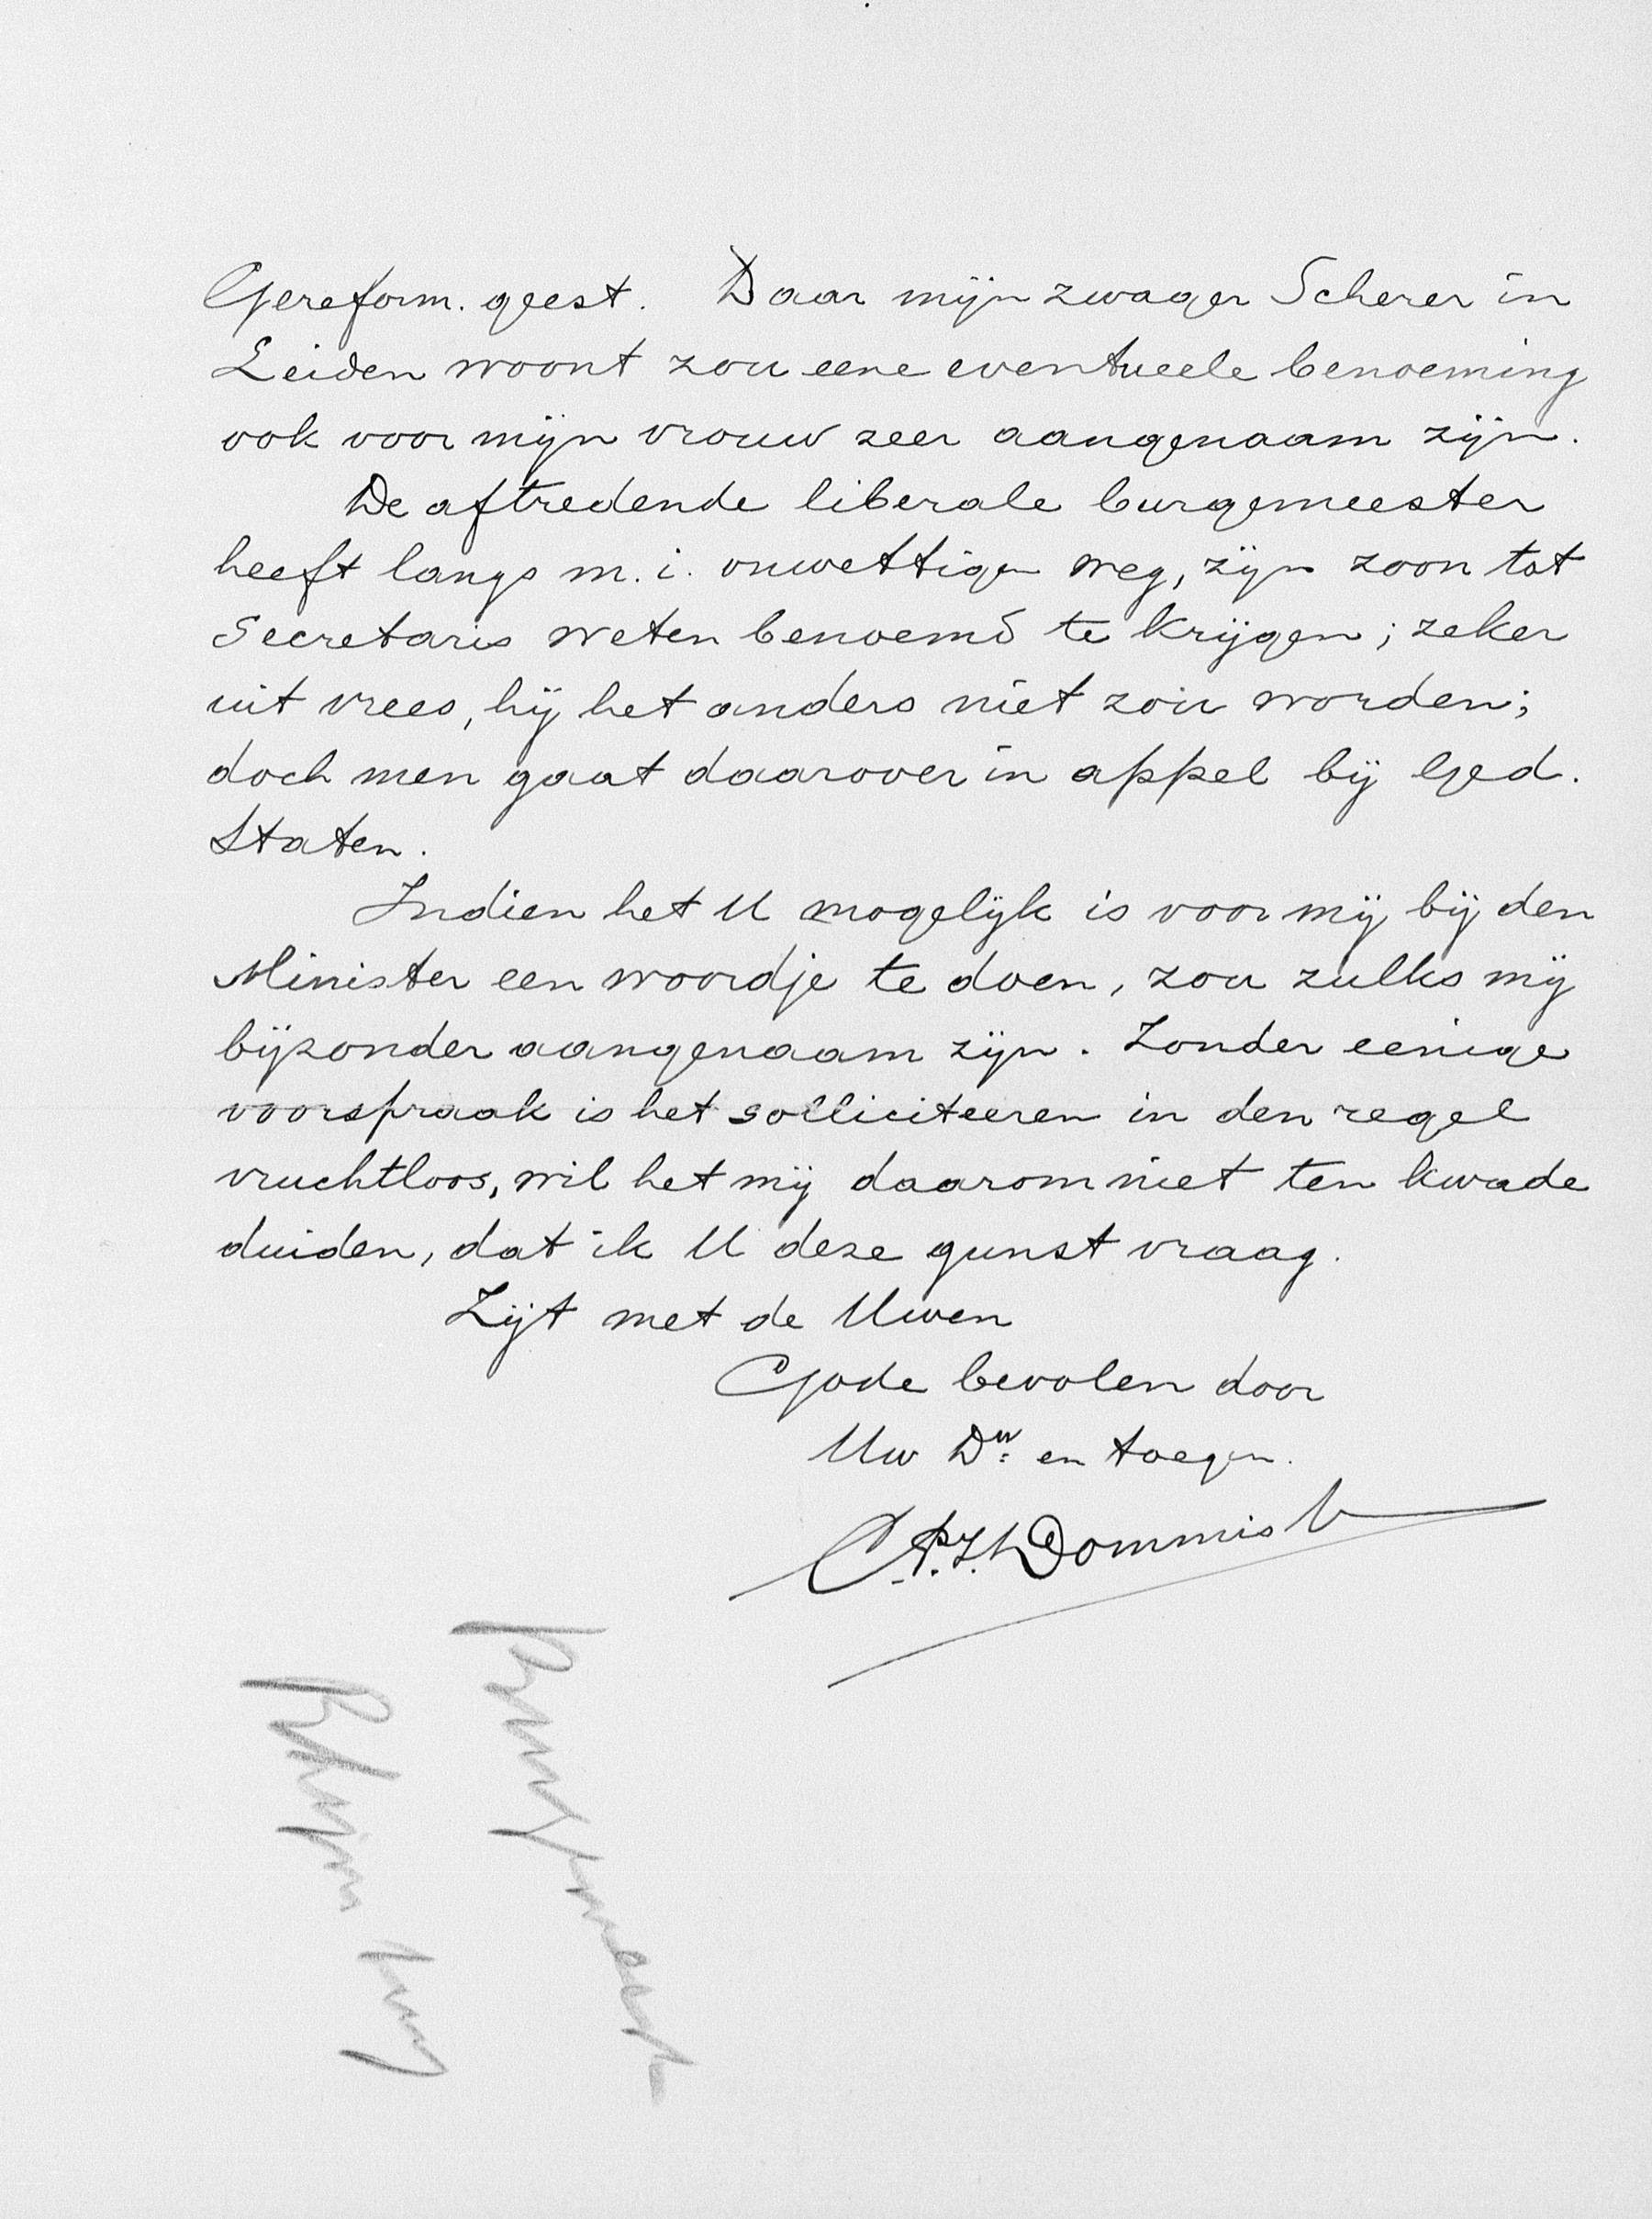 Gereform. geest. Daar mijn zwager Scherer in
Leiden woont zou eene eventueele benoeming
ook voor mijn vrouw zeer aangenaam zijn.
De aftredende liberale burgemeester
heeft langs m. i. onwettigen weg, zijn zoon tot
Secretaris weten benoemd te krijgen; zeker
uit vrees, hij het anders niet zou worden;
doch men gaat daarover in appel bij Ged.
Staten.
Indien het U mogelijk is voor mij bij den
Minister een woordje te doen, zou zulks mij
bijzonder aangenaam zijn. Zonder eenige
voorspraak is het solliciteeren in den regel
vruchtloos, wil het mij daarom niet ten kwade
duiden, dat ik U deze gunst vraag.
Zijt met de Uwen
Gode bevolen door
Uw Dw. en toegen.
Dommisse